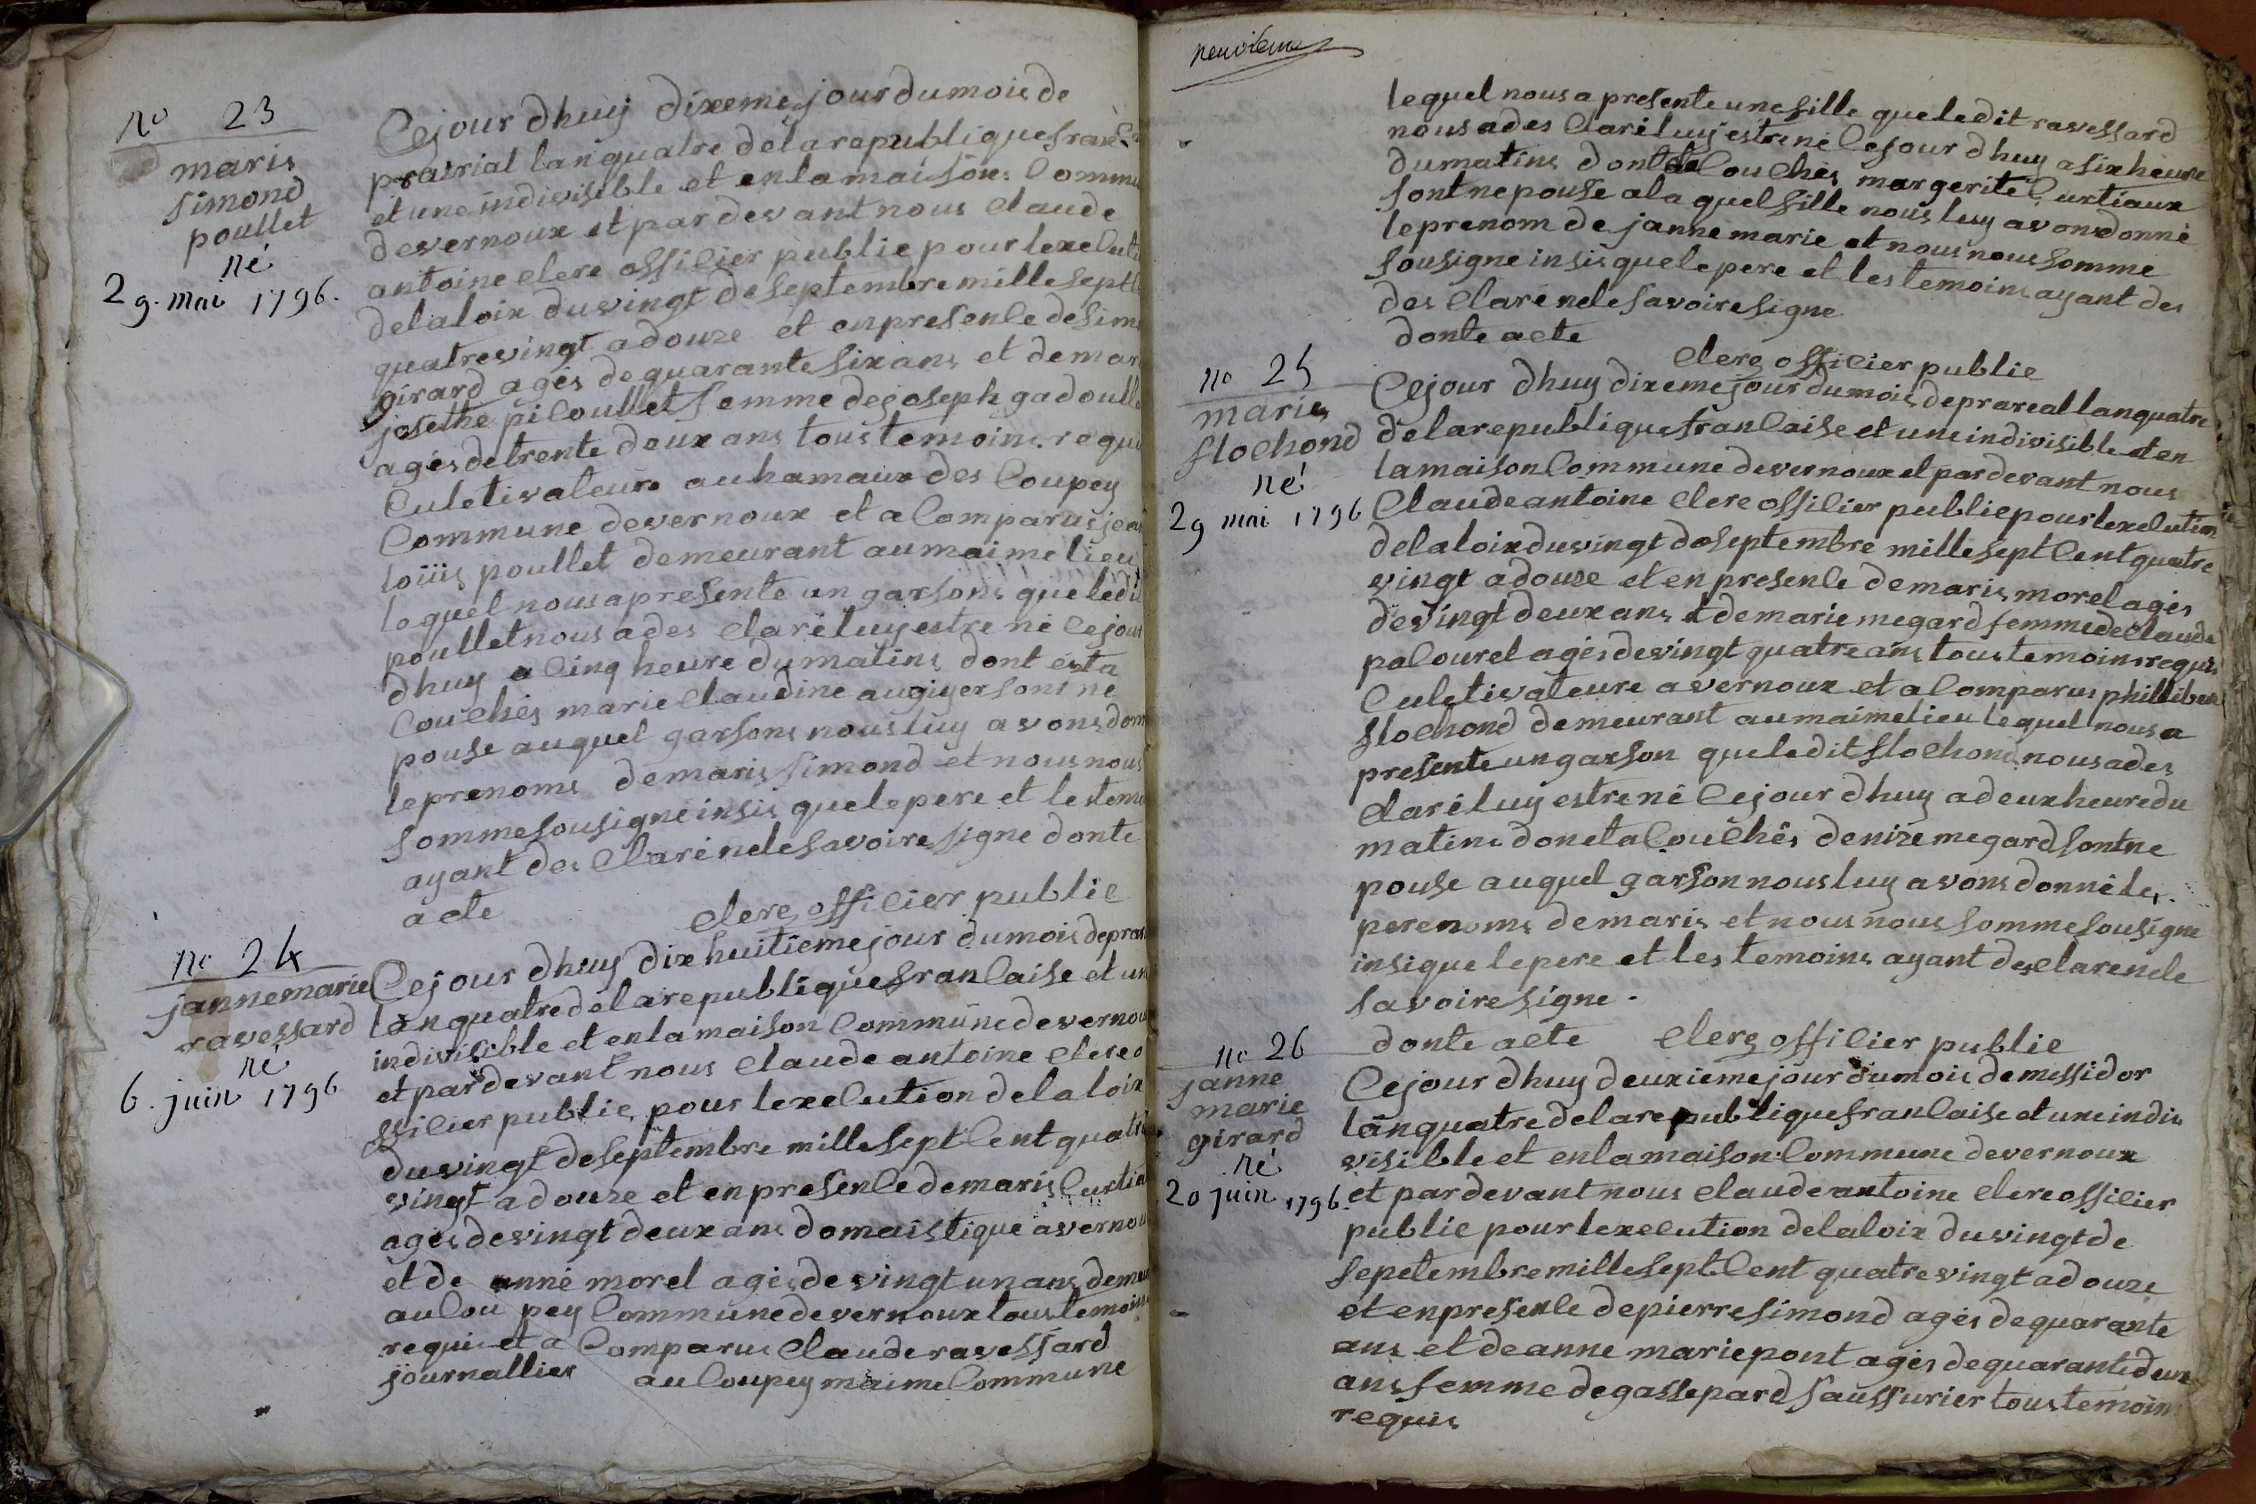 no 23
maris
simond
poullet
né
29. mai 1796.
Cejour dhuij dixemejour dumois de
prairial lanquatre delarepubliquefranC
etune indivisible et enlamaison Commu
devernoux et par devant nous claude
antoine clerc offilier public pourlexelut
delaloix duvingt deseptembre mille sept
quatrevingt adouze et enpresenle desim
girard agés dequarante sixans et demar
josethe piloullet femme dejoseph gadoull
agés detrente deuxans toustemoins requi
Culetivateure auhamaux des Coupey
Commune devernoux et a Comparus jea
loüis poullet demeurant aumaime lieu
lequel nousapresente un garsons queledi
poulletnous ades clareluyestre né cejour
dhuy a Cinq heure dumatins dont esta
Couchés marieclaudine augiyersons ne
pouse auquel garsons nousluy avonsdon
leprenoms demaris simond et nousnous
sommesousigneinsis quelepere et lestemo
ayant des clarenelesavoiresigne donte
acte
clerc officier public
no 24
jannemarie
ravessard
né
6. juin 1796
Cejour dhuy dixhuitiemejour dumoisdeprar
lanquatredelarepubliquefranlaise et un
indivisible et enlamaison Communedevernou
et pardevant nous claudeantoine clerc o
ffilier public pour lexelution delaloix
duvingt deseptembre millesept Centquatre
vingt adouze et enpresenledemaris Curtia
agés devingt deuxans domaistique avernou
et de anne morel agés devingt unans demeu
auCoupey Communedevernouxtoustemoins
requis et a Comparus claude ravessard
journallier auCoupey maimeCommune
neuvieme
lequel nous a presente une fille queledit ravessard
nousades clariluyestrené Cejour dhuy asixheure
dumatins dontla Couchés margerite Curtiaux
sontnepouse alaquelfille nous luy avonsdonné
leprenom de janne marie et nous nous somme
sousigneinsis quelepere et lestemoinsayant des
des clarénelesavoiresigne
donte acte
clerc officier public
no 25
maris
flochond
né
29 mai 1796
Cejour dhuy dixemejourdumois deprareallanquatre
delarepubliquefranlaise et uneindivisibleeten
lamaisonCommune devernoux et pardevant nous
Claudeantoine clerc offilier publicpourlexelution
delaloixduvingt deseptembre millesept Centquatre
vingt adouze et enpresenle demaris morelagés
devingt deuxans et demarie megard femmedeClaude
paCourel agésdevingt quatreans toustemoinsrequis
Culetivateure avernoux et aComparus phillibert
flochond demeurant aumaimelieu lequel nous a
presente ungarson queledit flochond nousades
clareluy estrené Cejour dhuy adeuxheuredu
matins donetaCouchés denize megard sontne
pouse auquel garson nousluy avonsdonné le
perenoms demaris et nous nous sommesousigne
insique lepere et les temoins ayant desclarenele
savoiresigne.
donte acte clerc officier public
no 26
janne
marie
girard
né
20 juin 1796.
Cejour dhuy deuxiemejour dumois demessidor
lanquatredelarepubliquefranlaise et uneindi
visible et enlamaison Commune devernoux
et pardevant nous claudeantoine clerc offilier
public pourlexelution delaloix duvingt de
sepetembremillesept Cent quatrevingt adouze
et enpresenle depierre simond agés dequarante
ans et deanne mariepont agés dequarantedeux
ans femme degassepard saussurier toustemoins
requis